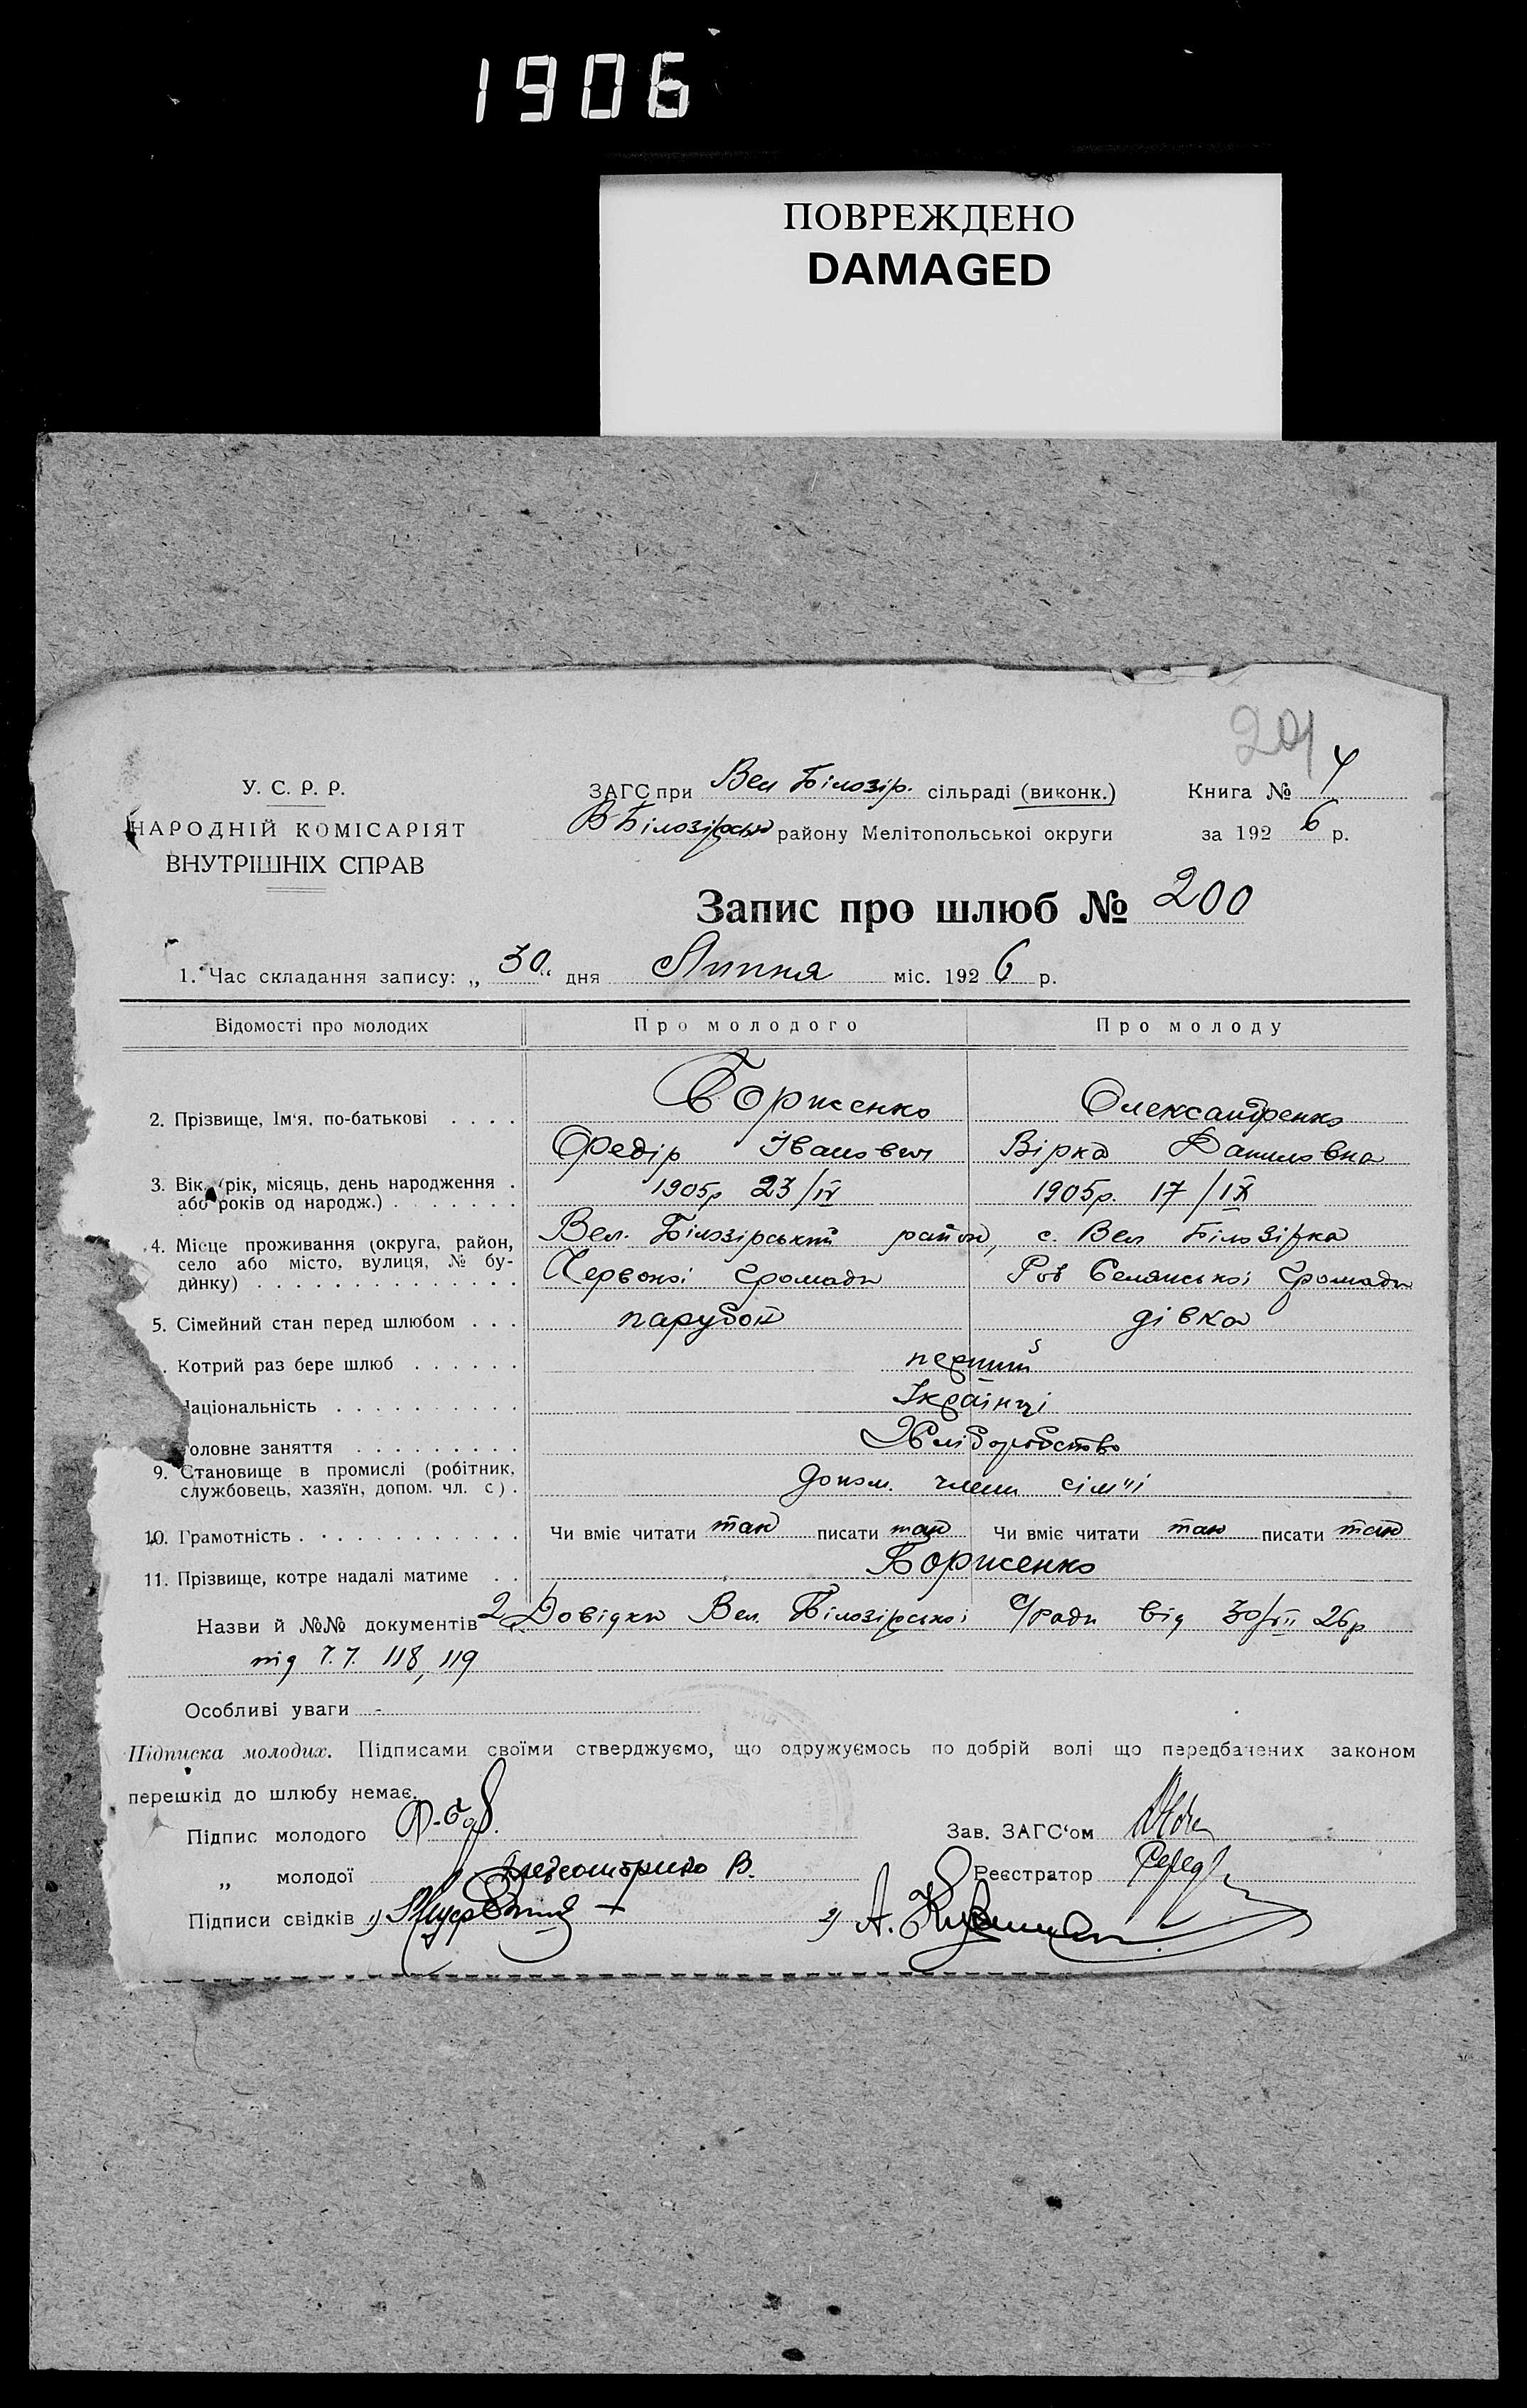 1906
ПОВРЕЖДЕНО
DAMAGED
201
У. С. Р. Р.
НАРОДНІЙ КОМІСАРІЯТ
ВНУТРІШНІХ СПРАВ
ЗАГС при Вел Білозір. сільраді (виконк.)
В Білозірськ району Мелітопольської округи
Книга № 4
за 1926 р.
Запис про шлюб № 200
1. Час складання запису: „30“ дня Липня міс. 1926 р.
Відомості про молодих Про молодого Про молоду
2. Прізвище, Ім'я, по-батькові . . . . Борисенко Олександренко
Федір Іванович Вірка Даниловна
3. Вік (рік, місяць, день народження . 1905р 23/IV 1905р. 17/IX
або років од народж.) . . . . . . .
4. Місце проживання (округа, район, Вел. Білозірський район, с. Вел Білозірка
село або місто, вулиця, № бу-
динку) . . . . . . . . . . . . . . Червоної громади Селянської Громади
5. Сімейний стан перед шлюбом . . . парубок дівка
. Котрий раз бере шлюб . . . . . . перший
аціональність . . . . . . . . . . Українці
оловне заняття . . . . . . . . . Хліборобство
9. Становище в промислі (робітник,
службовець, хазяїн, допом. чл. с) . допом. члени сім"ї
10. Грамотність . . . . . . . . . . . . Чи вміє читати так писати так Чи вміє читати так писати так
11. Прізвище, котре надалі матиме . . Борисенко
Назви й №№ документів 2 Довідки Вел. Білозірської с/ради від 30/VII 26р
під ч.ч. 118, 119
Особливі уваги -
Підписка молодих. Підписами своїми стверджуємо, що одружуємось по добрій волі що передбачених законом
перешкід до шлюбу немає.
Підпис молодого Ф. Бор.
Зав. ЗАГС'ом
„ молодої В.
Реєстратор
Підписи свідків 1) 2) А.